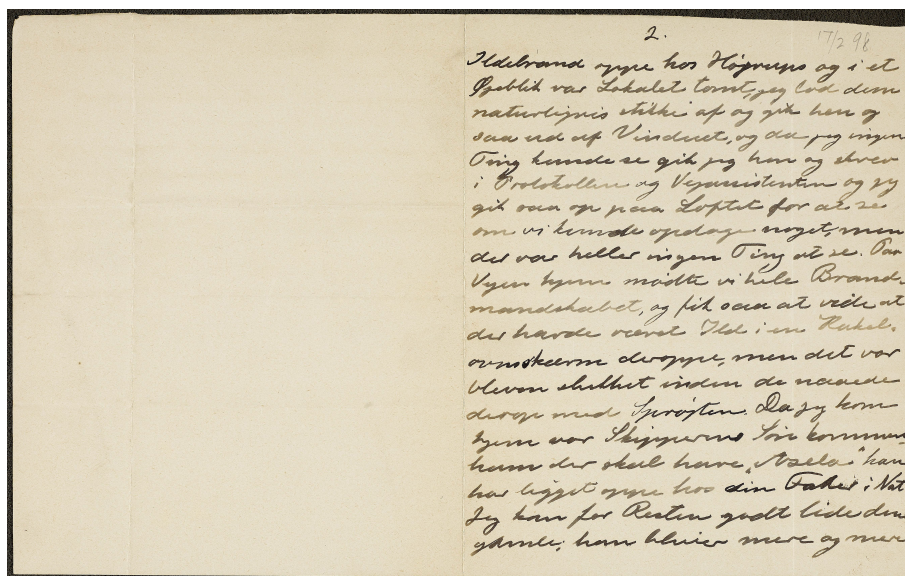 2.
17/2 98
Ildebrand oppe hos Højrups og i et
Øjeblik var Lokalet tomt, jeg lod dem
naturligvis stikke af og gik hen og
saa ud af Vinduet, og da jeg ingen
Ting kunde se gik jeg hen og skrev
i Protokollen og Vejassistenten og jeg
gik saa op paa Loftet for at se
om vi kunde opdage noget, men
der var heller ingen Ting at se. Paa
Vejen hjem mødte vi hele Brand-
mandskabet, og fik saa at vide at
der havde været Ild i en Kakel-
ovnskærm deroppe, men det var
bleven slukket inden de naaede
derop med Sprøjten. Da jeg kom
hjem var Skipperens Søn kommen,
ham der skal have "Axela" han
har ligget oppe hos din Fader i Nat
Jeg kan for Resten godt lide den
gamle; han bliver mere og mere